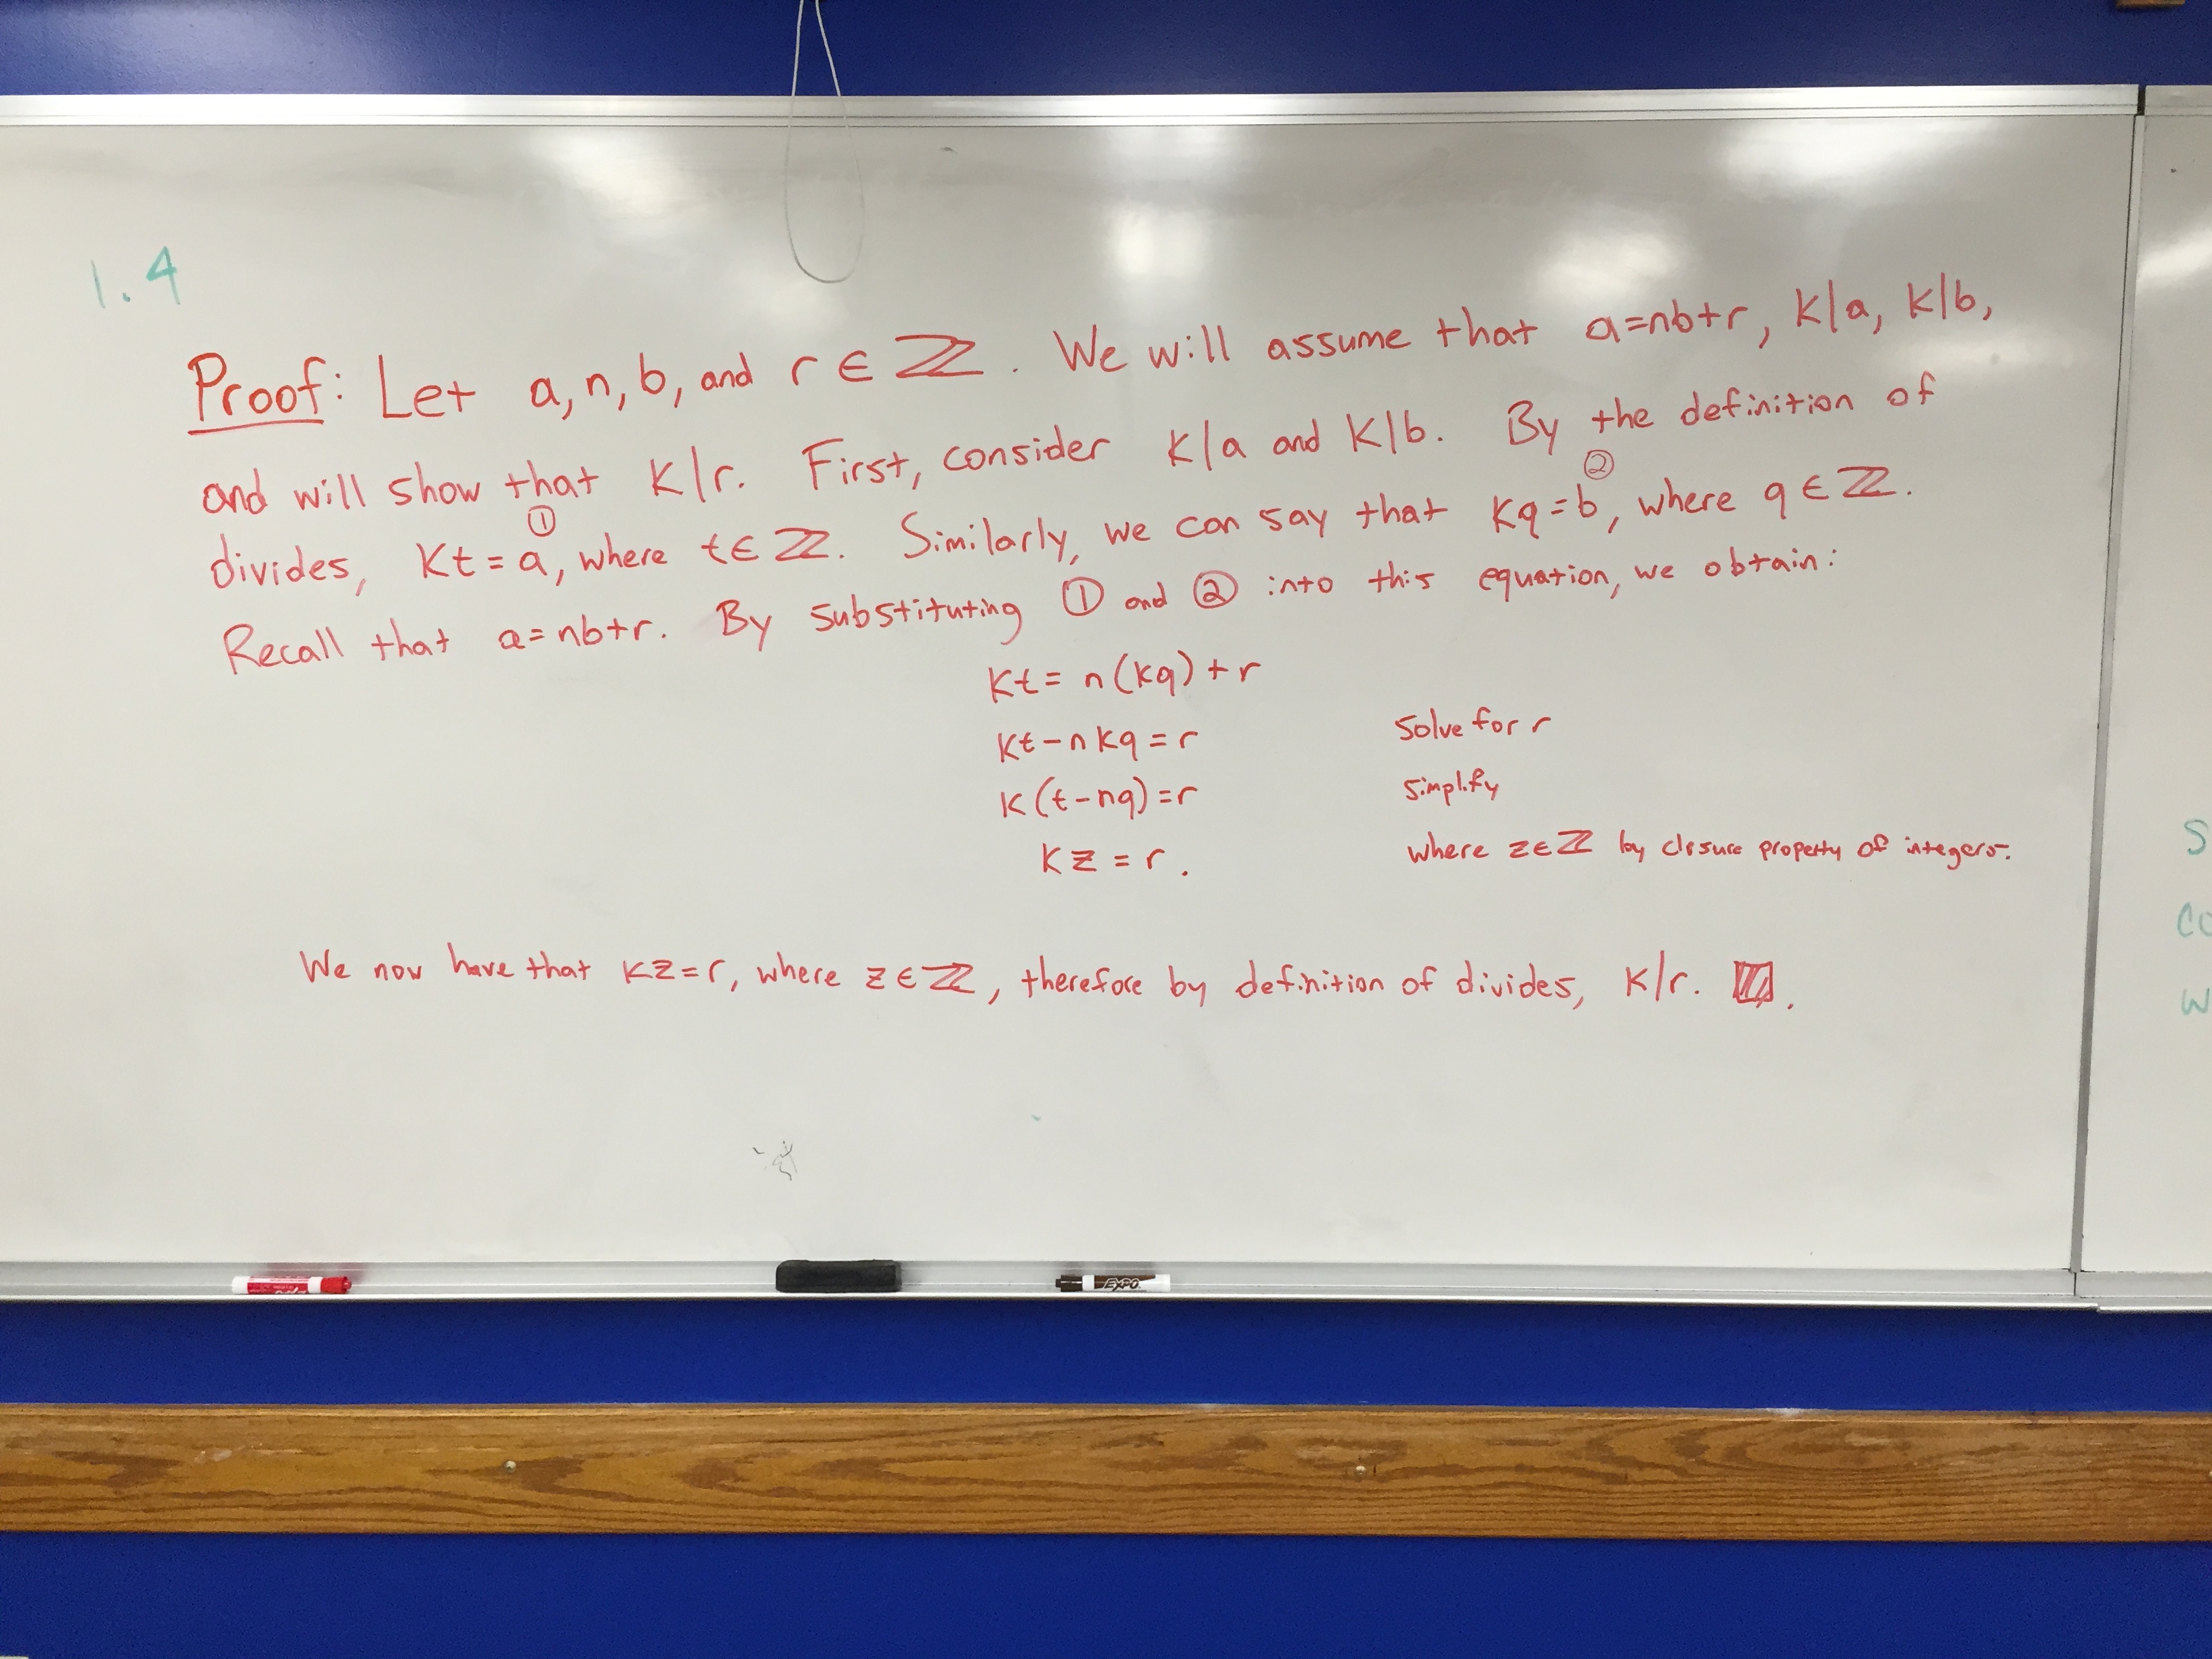 1.4
Proof: Let a, n, b, and r ∈ ℤ. We will assume that a=nb+r, k|a, k|b,
and will show that k|r. First, consider k|a and k|b. By the definition of
①
②
divides, kt = a, where t ∈ ℤ. Similarly, we can say that kq = b, where q ∈ ℤ.
Recall that a = nb+r. By substituting ① and ② into this equation, we obtain:
kt = n(kq) + r
kt - nkq = r solve for r
k(t-nq) = r simplify
kz = r. where z∈ℤ by closure property of integers.
We now have that kz=r, where z ∈ ℤ, therefore by definition of divides, k|r. ▨.
S
CO
W
EXPO